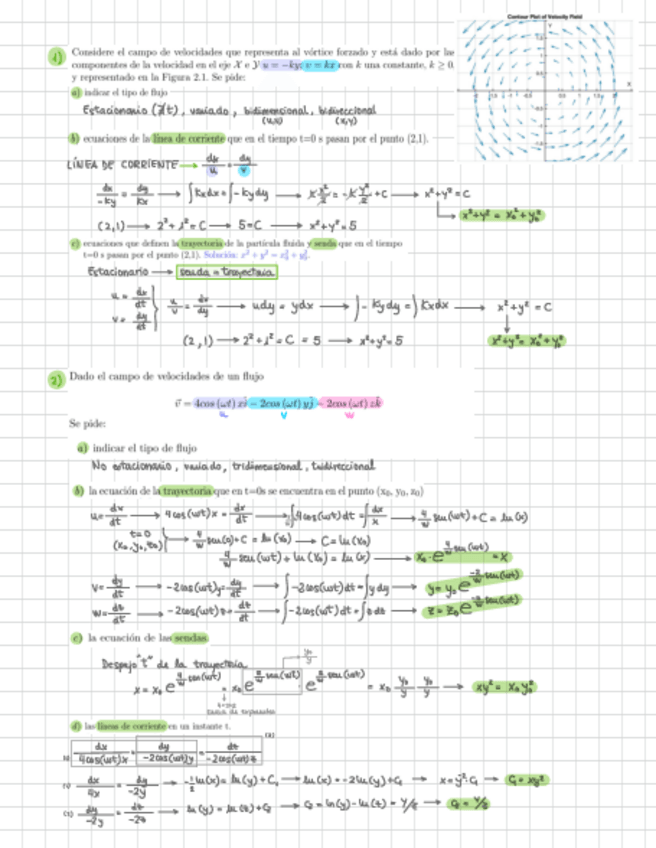 Contour Plot of Velocity Field
1) Considere el campo de velocidades que representa al vórtice forzado y está dado por las
componentes de la velocidad en el eje X e Y u = -ky; v = kx con k una constante, k ≥ 0,
y representado en la Figura 2.1. Se pide:
a) indicar el tipo de flujo
Estacionario (∄t), variado, bidimensional, bidireccional
(u,v) (x,y)
b) ecuaciones de la línea de corriente que en el tiempo t=0 s pasan por el punto (2,1).
LÍNEA DE CORRIENTE → dx/u = dy/v
dx/-ky = dy/kx → ∫kxdx = ∫-kydy → kx²/2 = -ky²/2 + C → x²+y² = C
x²+y² = x₀²+y₀²
(2,1) → 2²+1² = C → 5=C → x²+y²=5
c) ecuaciones que definen la trayectoria de la partícula fluida y senda que en el tiempo
t=0 s pasan por el punto (2,1). Solución: x² + y² = x₀² + y₀².
Estacionario → senda = trayectoria
u = dx/dt
v = dy/dt
u/v = dx/dy → udy = vdx → ∫-kydy = ∫kxdx → x²+y² = C
(2,1) → 2²+1² = C = 5 → x²+y²=5
x²+y² = x₀²+y₀²
2) Dado el campo de velocidades de un flujo
v⃗ = 4cos (ωt) xi⃗ - 2cos (ωt) yj⃗ - 2cos (ωt) zk⃗
u v w
Se pide:
a) indicar el tipo de flujo
No estacionario, variado, tridimensional, tridireccional
b) la ecuación de la trayectoria que en t=0s se encuentra en el punto (x₀, y₀, z₀)
u = dx/dt → 4cos(wt)x = dx/dt → ∫4cos(wt)dt = ∫dx/x → 4/w sen(wt)+C = ln(x)
t=0
(x₀,y₀,z₀)
4/w sen(0)+C = ln(x₀) → C = ln(x₀)
4/w sen(wt) + ln(x₀) = ln(x) → x₀·e^(4/w sen(wt)) = x
v = dy/dt → -2cos(wt)y = dy/dt → ∫-2cos(wt)dt = ∫y dy → y = y₀ e^(-2/w sen(wt))
w = dz/dt → -2cos(wt)z = dz/dt → z = z₀ e^(-2/w sen(wt))
c) la ecuación de las sendas.
Despejo "t" de la trayectoria
x = x₀ e^(4/w sen(wt)) = x₀ e^(2/w sen(wt)) e^(2/w sen(wt)) = x₀ y₀/y y₀/y → xy² = x₀y₀²
y₀/y
d) las líneas de corriente en un instante t.
(2)
(1) dx/4cos(wt)x = dy/-2cos(wt)y = dz/-2cos(wt)z
(1) dx/4x = dy/-2y → -1/2 ln(x) = ln(y) + C₁ → ln(x) = -2ln(y)+C₁ → x = y⁻²·C₁ → C₁ = xy²
(2) dy/-2y = dz/-2z → ln(y) = ln(z)+C₂ → C₂ = ln(y)-ln(z) = y/z → C₂ = y/z